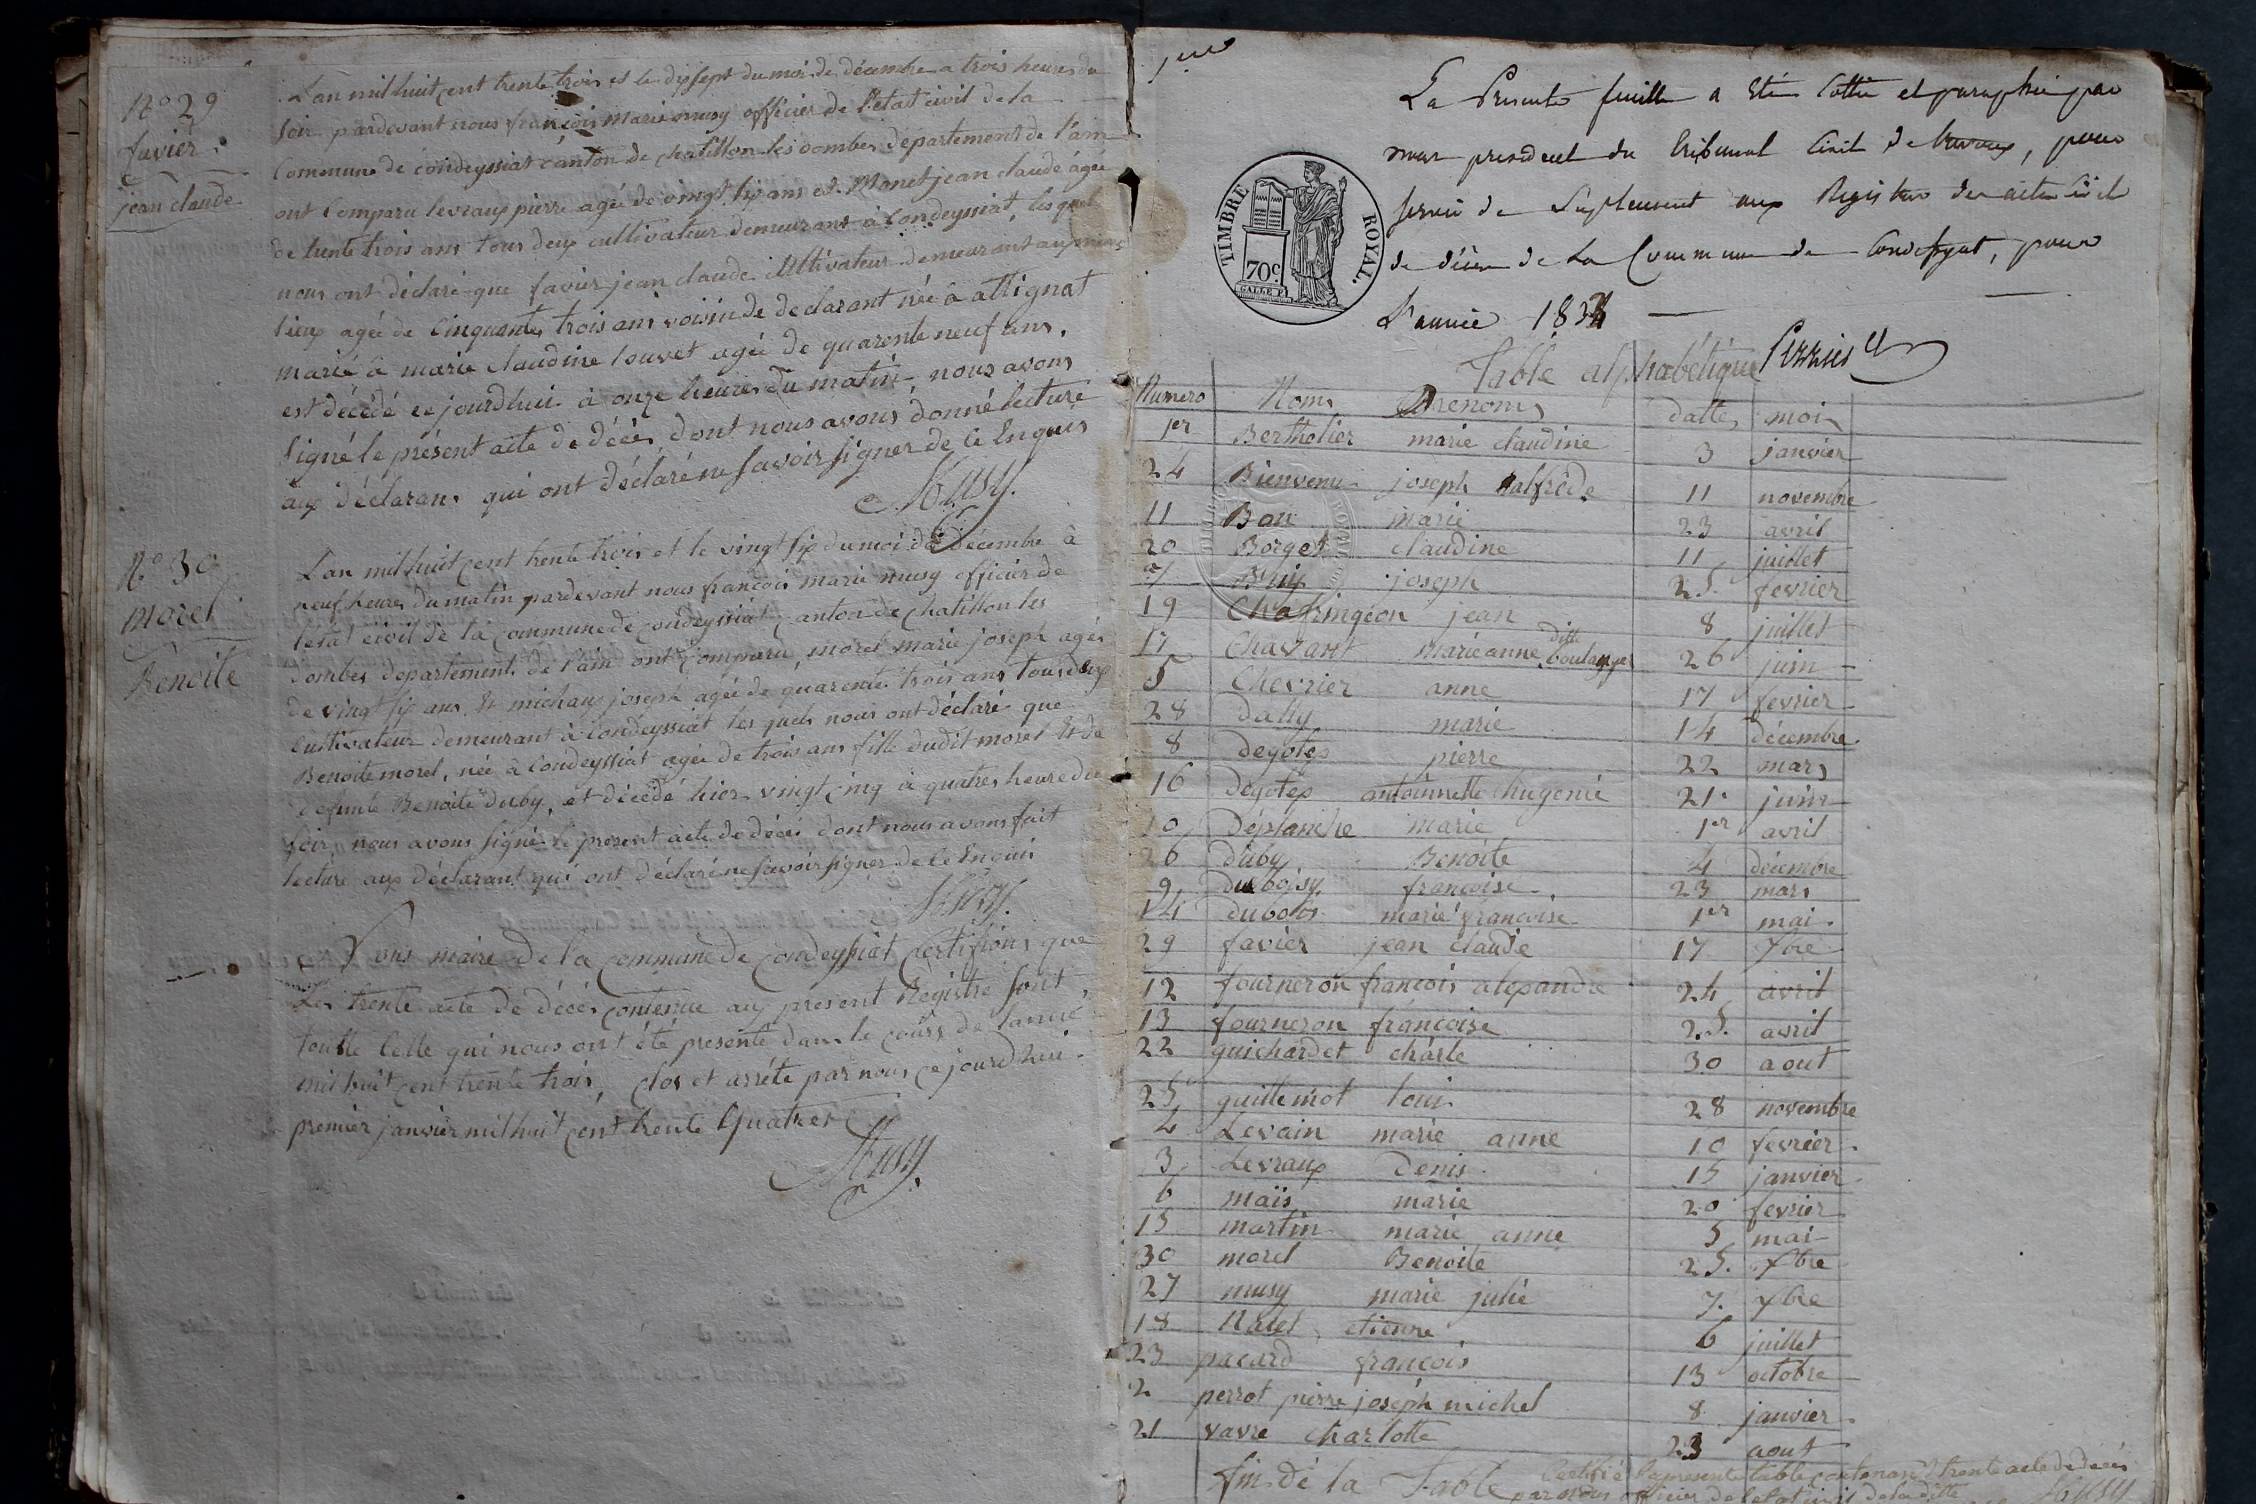 N° 29
favier
jean claude
L'an mil huit cent trente trois et le dix sept du moi de décembre a trois heures du
soir pardevant nous françois marie musy officier de l'état civil de la
Commune de condeyssiat canton de chatillon les dombes departement de l'ain
ont comparu levraux pierre agée de vingt six ans et Monet jean claude âgée
de trente trois ans tous deux cultivateur demeurant à Condeyssiat, les quel
nous ont déclaré que favier jean claude cultivateur demeurant au même
lieux agée de Cinquante trois ans voisin de declarant née à attignat
marié à marie claudine louvet agée de quarente neuf ans.
est décédé ce jourdhui à onze heures du matin, nous avons
signé le présent acte de décès dont nous avons donné lecture
aux déclarans qui ont déclaré ne savoir signer de ce Enquis
Musy.
N° 30
morel
Benoite
L'an mil huit cent trente trois et le vingt six du moi de décembre à
neuf heures du matin pardevant nous françois marie musy officier de
letat civil de la commune de condeyssiat canton de chatillon les
dombes departement de l'ain ont comparu, morel marie joseph agée
de vingt six ans Et michaux joseph agée de quarente trois ans tous deux
Cultivateur demeurant à Condeyssiat les quels nous ont déclaré que
Benoite morel, née à Condeyssiat agée de trois ans fille dudit morel Et de
defunte Benoite Duby, est décédé hier vingt cinq à quatres heure du
soir nous avons signé le present acte de décès dont nous avons fait
lecture aux déclarant qui ont déclaré ne savoir signer de ce Enquis
Musy.
Nous maire de la commune de condeyssiat Certifions que
Les trente acte de décès contenue au present Registre sont
toutte Celle qui nous ont été presenté dans le cours de l'anné
mil huit cent trente trois, clos et arrété par nous ce jourdhui
premier janvier mil huit cent trente Quatres
Musy.
1ere
La Presente feuille a Eté Cottée et paraphée par
nous president du tribunal Civil de trevoux, pour
servir de Suplement aux Registres des actes Civils
de décès de La Commune de Condeyssiat, pour
L'année 1834
TIMBRE ROYAL.
70c
GALLE F.
Table alphabétique
Numero Noms Prenoms datte moi
1er Bertholier marie claudine 3 janvier
24 Bienvenu joseph alfrede 11 novembre
11 Bon marie 23 avril
20 Borget claudine 11 juillet
7 Brix joseph 25 fevrier
19 Chafringeon jean 8 juillet
17 Chavant marieanne ditte boulanger 26 juin
5 Chevrier anne 17 fevrier
28 dally marie 14 décembre
8 degotes pierre 22 mars
16 degotes antoinnette hugenie 21 juin
10 déplanche marie 1er avril
26 duby Benoite 4 décembre
9 duboisy françoise 23 mars
14 dubois marie françoise 1er mai
29 favier jean claude 17 xbre
12 fourneron françois alexandre 24 avril
13 fourneron françoise 25 avril
22 guichardet charle 30 aout
25 guillemot loui 28 novembre
4 Levain marie anne 10 fevrier
3 Levraux Denis 15 janvier
6 maïs marie 20 fevrier
15 martin marie anne 5 mai
30 morel Benoite 25 xbre
27 musy marie julie 7 xbre
18 Natel etienne 6 juillet
23 pacard françois 13 octobre
2 perrot pierre joseph michel 8 janvier
21 vavre charlotte 23 aout
fin de la Table
Certifié la presente table contenant trente acte de décès
par nous officier de letat civil de la ditte
Musy